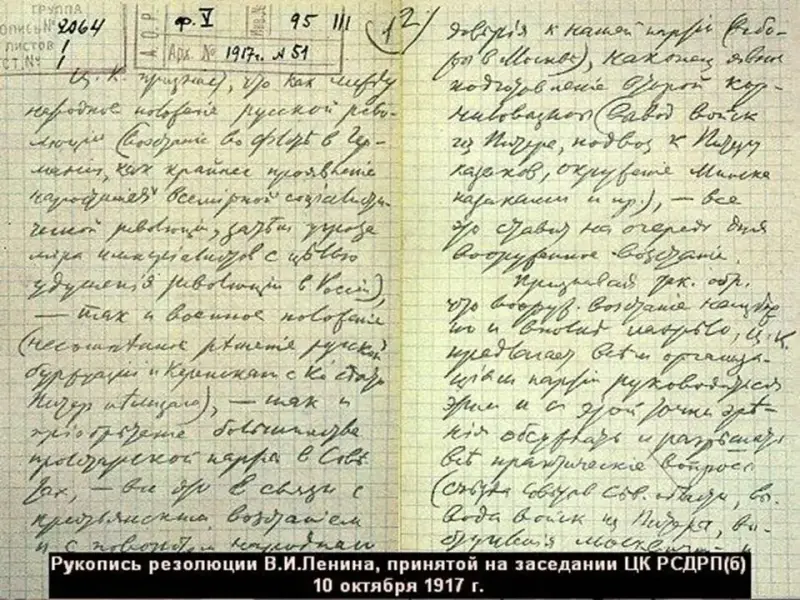 ГРУППА
ОПИСЬ № 2064
ЛИСТОВ 1
СТ. № 1
А О Р.
ф. V
95 III
Арх. № 1917 г. № 51
12
Ц. К. признает, что как между
народное положение русской рево-
люции (восстание во флоте в Гер-
мании, как крайнее проявление
нарастания всемирной социалисти-
ческой революции, затем угроза
мира империалистов с целью
удушения революции в России),
— так и военное положение
(несомненное решение русской
буржуазии и Керенского с Ко сдать
Питер немцам), — так и
приобретение большинства
пролетарской партией в Сове-
тах, — все это в связи с
крестьянским восстанием
и с поворотом народного
доверия к нашей партии (выбо-
ры в Москве), наконец явное
подготовление второй кор-
ниловщины (вывод войск
из Питера, подвоз к Питеру
казаков, окружение Минска
казаками и пр.), — все
это ставит на очередь дня
вооруженное восстание.
Признавая так. обр.
что вооруж. восстание неизбеж
но и вполне назрело, Ц. К.
предлагает всем организа-
циям партии руководиться
этим и с этой точки зре-
ния обсуждать и разрешать
все практические вопросы
(съезда советов Сев. области, вы-
вода войск из Питера, вы-
ступления москвичей и
Рукопись резолюции В.И.Ленина, принятой на заседании ЦК РСДРП(б)
10 октября 1917 г.